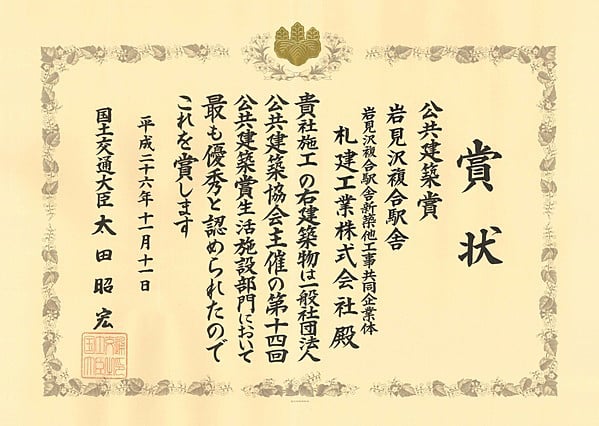 賞状
公共建築賞
岩見沢複合駅舎
岩見沢複合駅舎新築他工事共同企業体
札建工業株式会社殿
貴社施工の右建築物は一般社団法人
公共建築協会主催の第十四回
公共建築賞生活施設部門において
最も優秀と認められたので
これを賞します
平成二十六年十一月十一日
国土交通大臣 太田昭宏